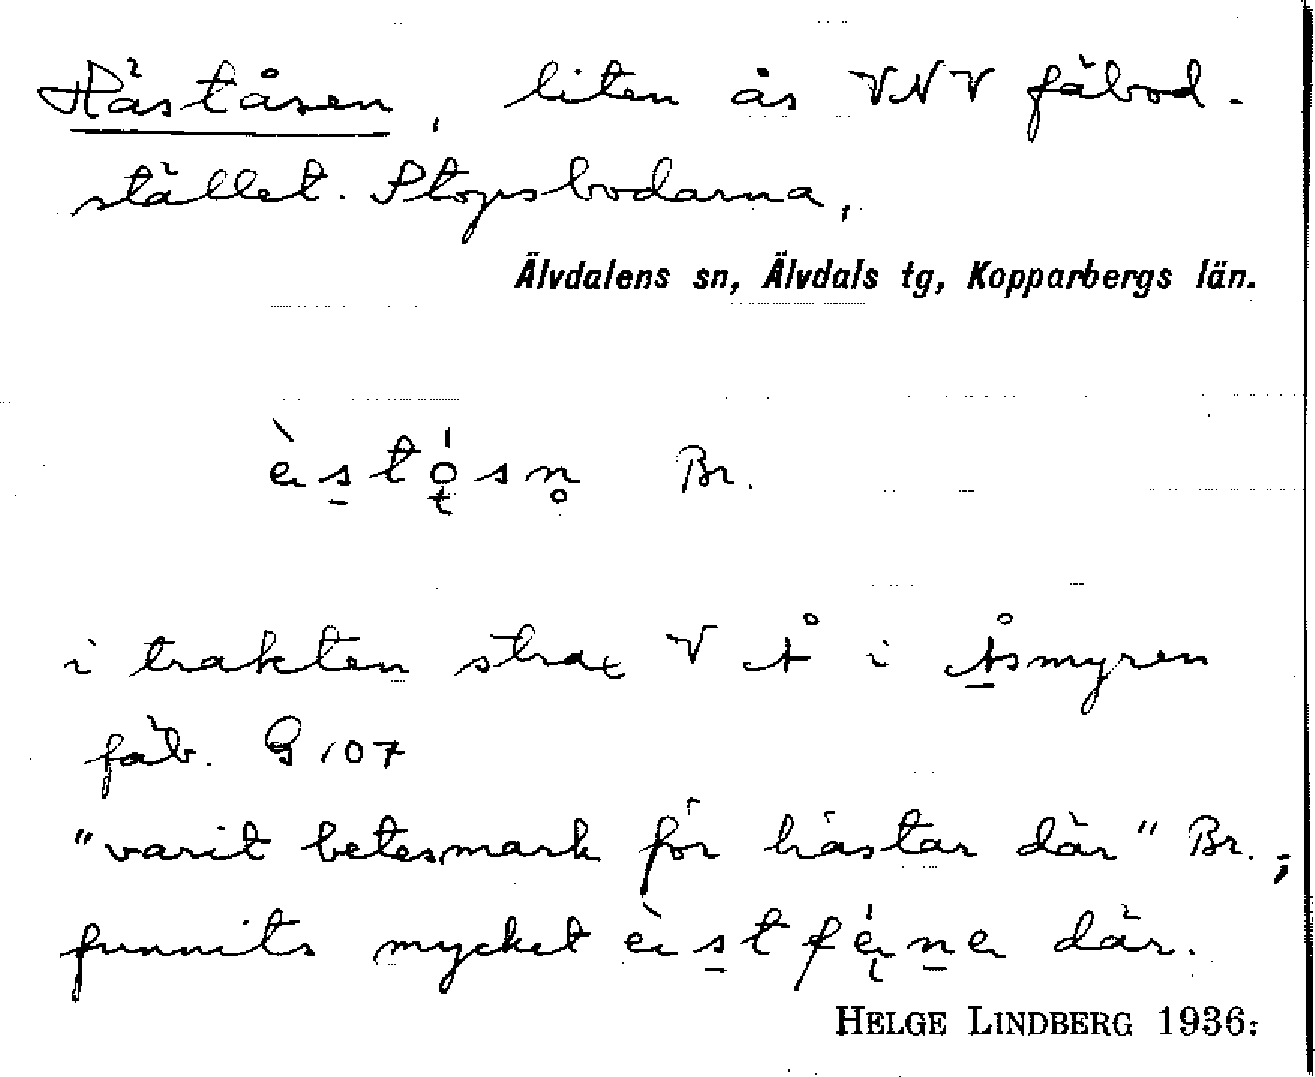 Häståsen, liten ås VNV fäbod-
stället. Stopsbodarna,
Älvdalens sn, Älvdals tg, Kopparbergs län.
Br.
i trakten strax V Å i Åsmyren
fäb. G 107
"varit betesmark för hästar där" Br.;
funnits mycket där.
HELGE LINDBERG 1936.